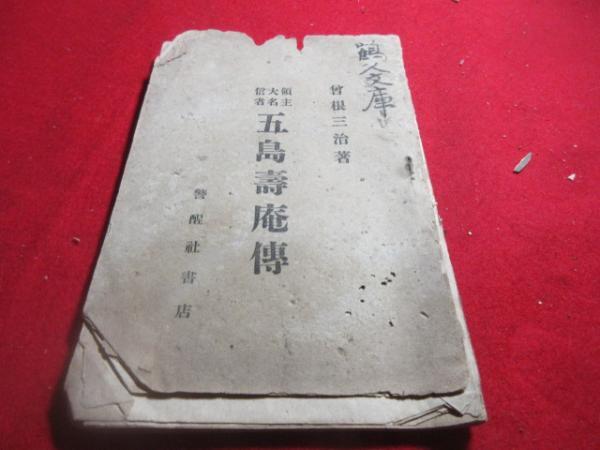 鶴人文庫
曾根三治著
領主
大名
信者
五島壽庵傳
警醒社書店